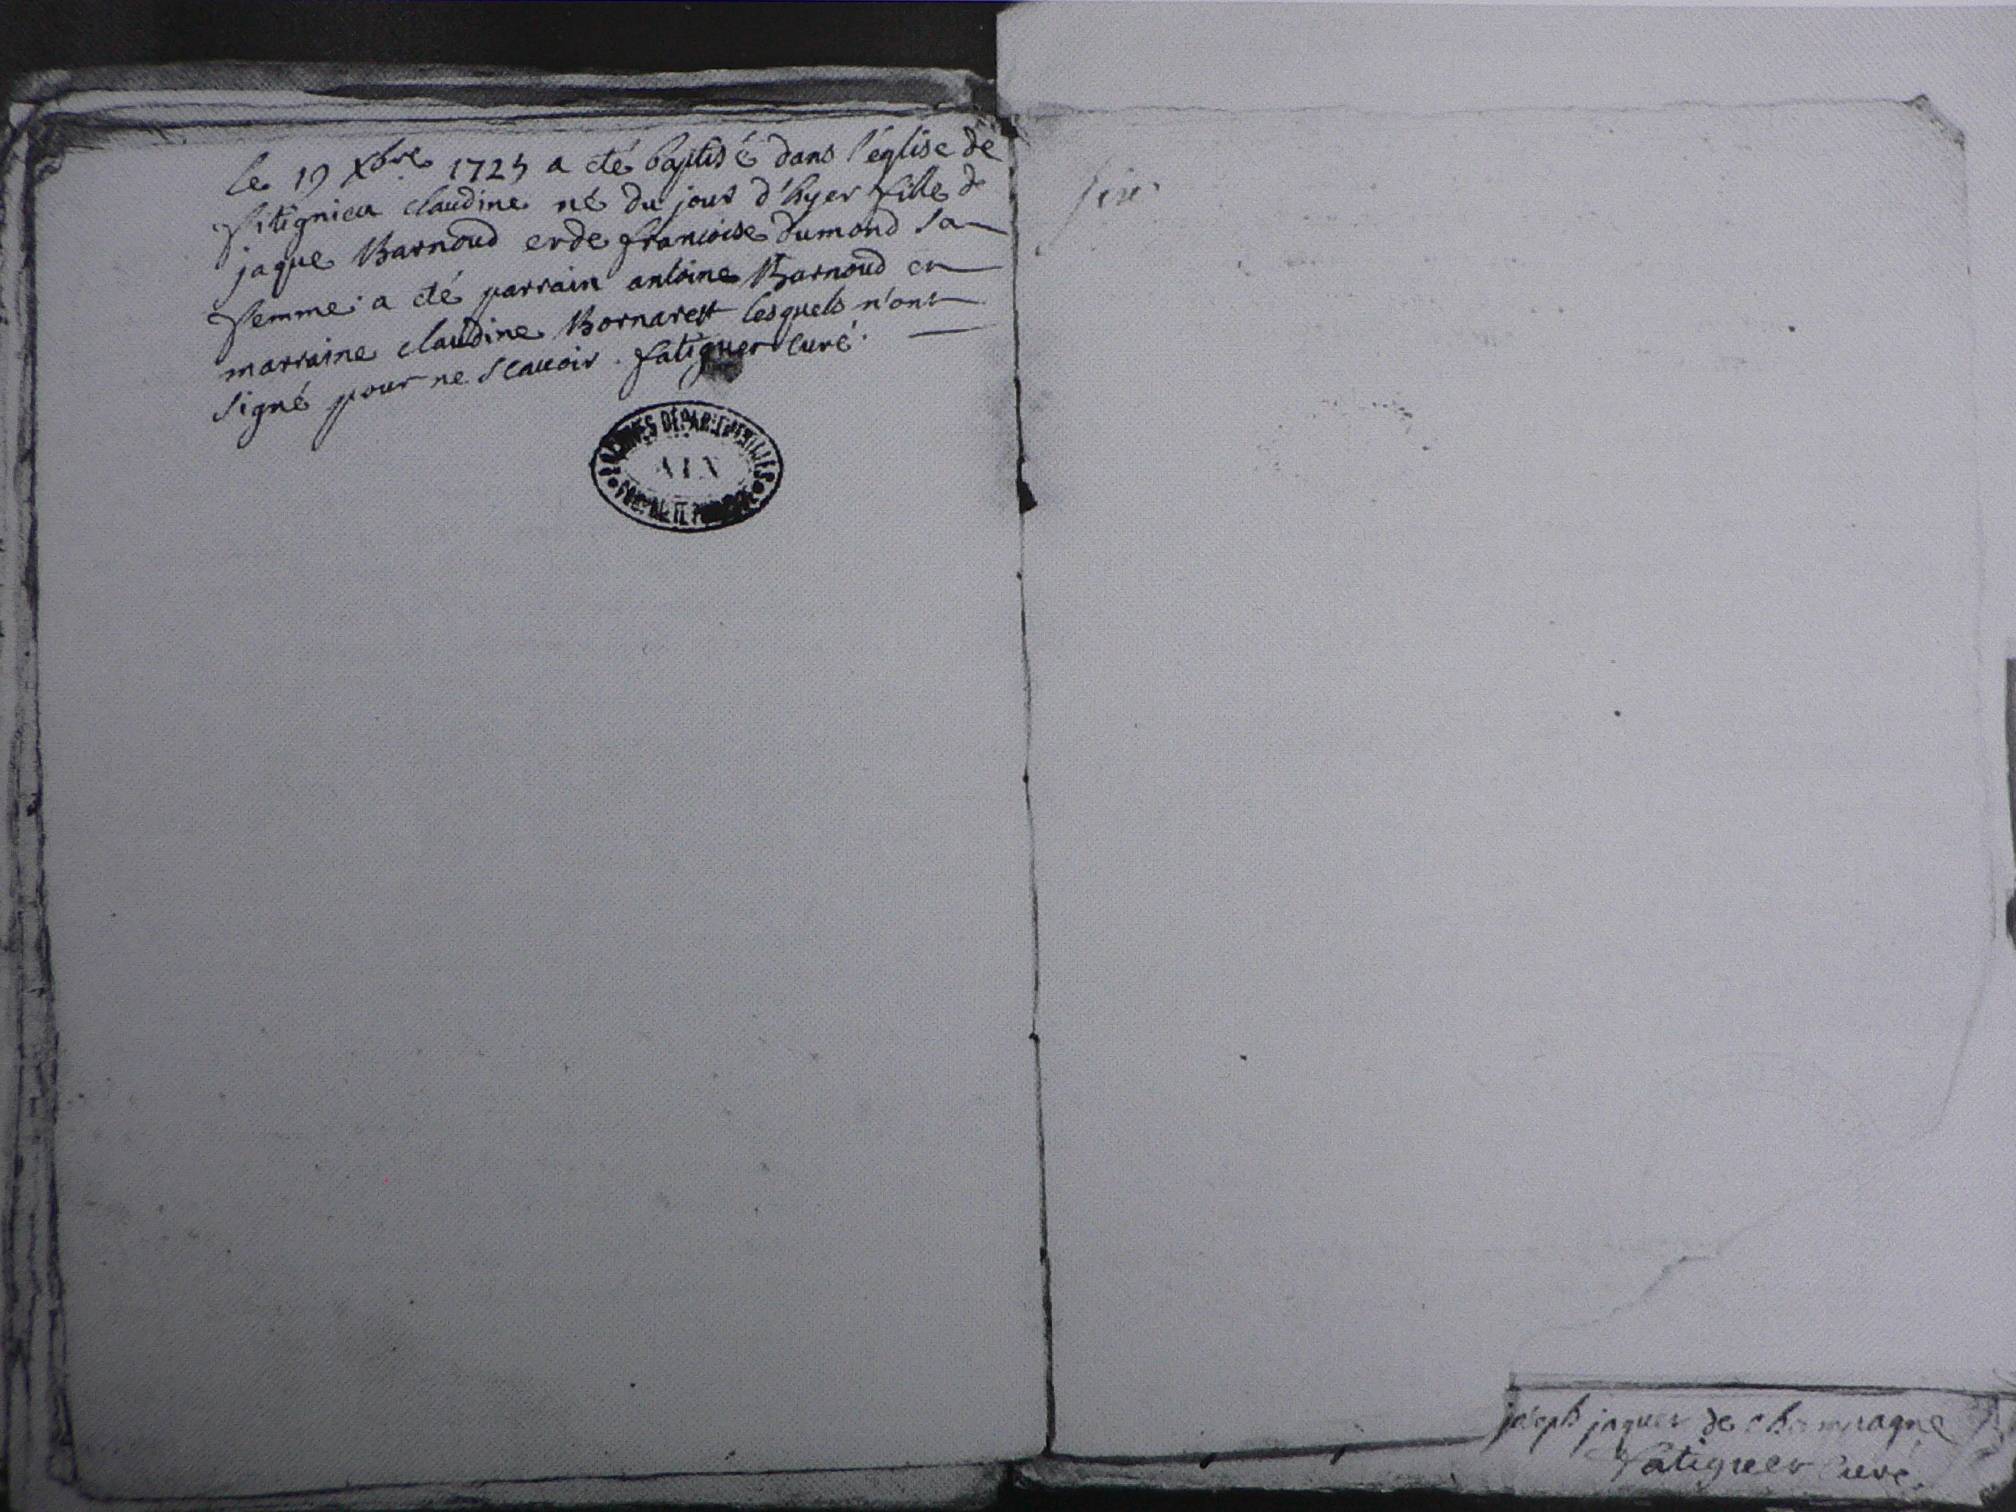 le 19 Xbre 1725 a eté baptisé dans l'église de
fitignieu claudine né du jour d'hyer fille d
jaque Barnoud et de francoise dumond sa
femme. a eté parrain antoine Barnoud et
marraine claudine Bornarest lesquels n'ont
signé pour ne scauoir. fatiguet curé.
ARCHIVES DÉPARTEMENTALES
AIN
joseph jaques de champagne
fatiguet curé.